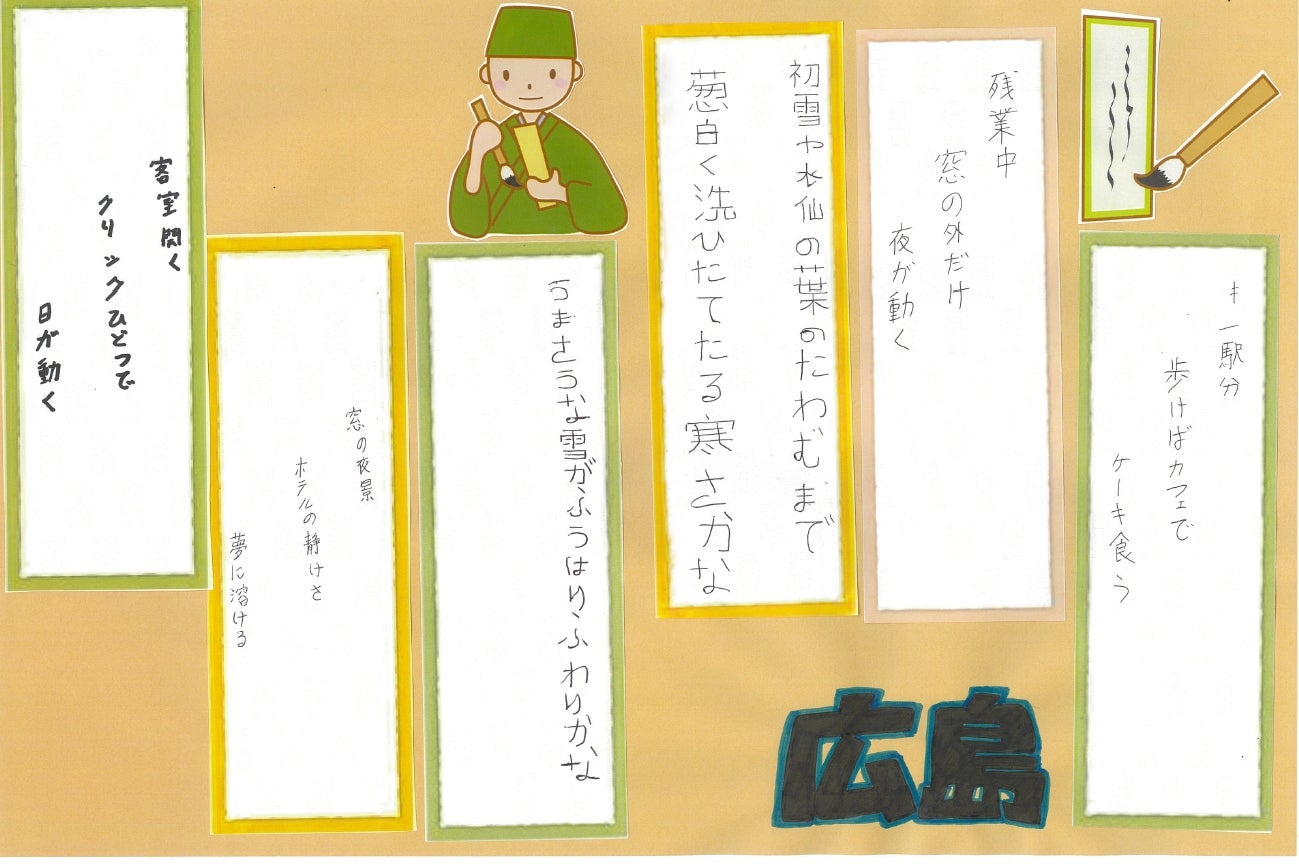 一駅分
歩けばカフェで
ケーキ食う
残業中
窓の外だけ
夜が動く
初雪や水仙の葉のたわむまで
葱白く洗ひたてたる寒さかな
うまさうな雪がふうはりふわりかな
窓の夜景
ホテルの静けさ
夢に溶ける
客室開く
クリックひとつで
日が動く
広島